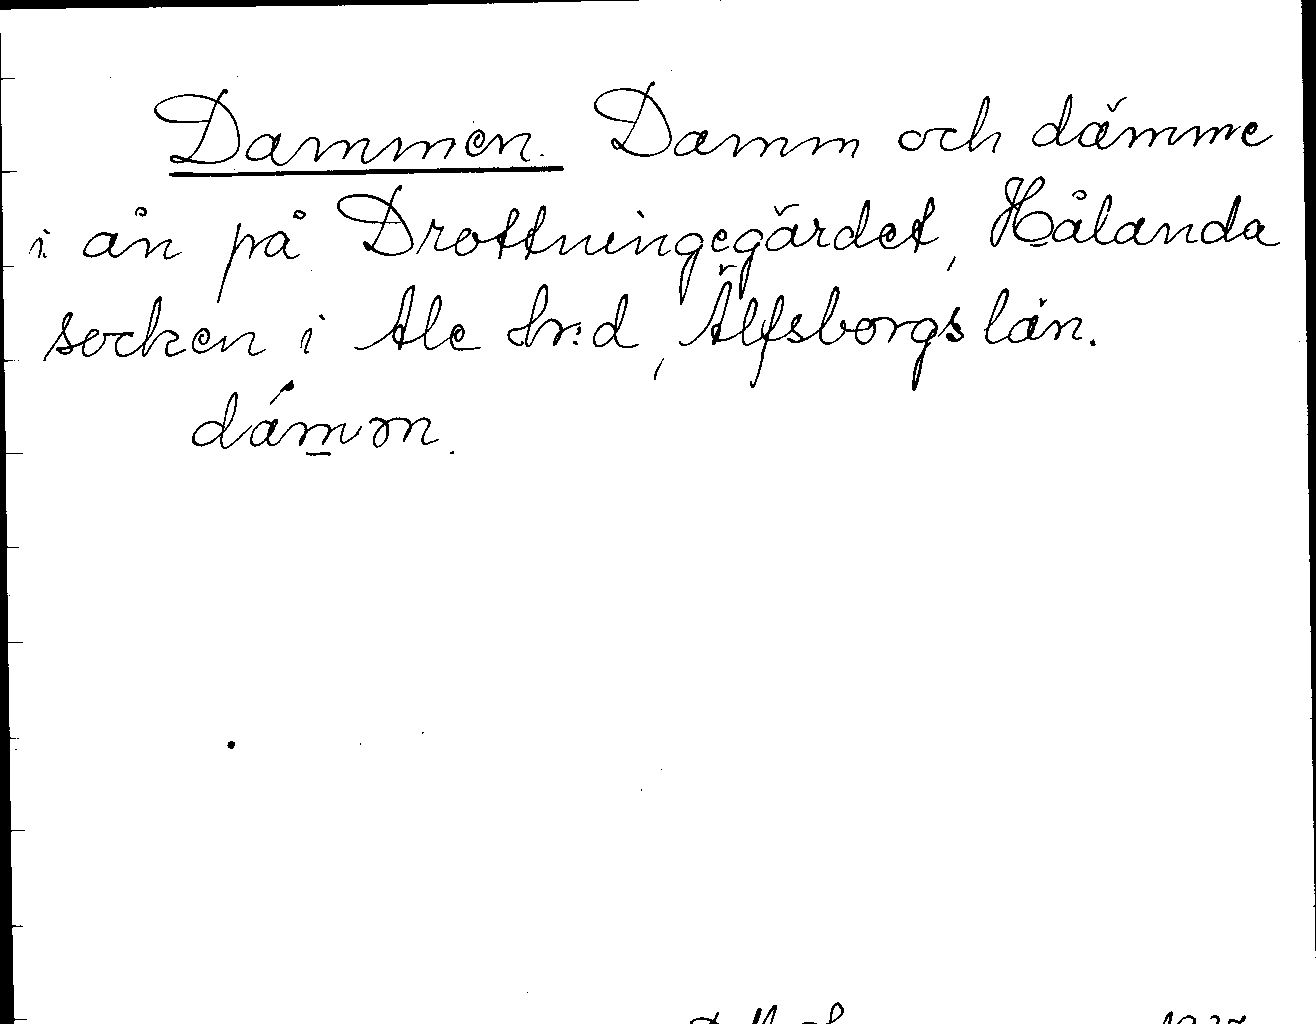 Dammen. Damm och dämme
i ån på Drottningegärdet, Hålanda
socken i Ale hrd, Älfsborgs län.
dámɘn.